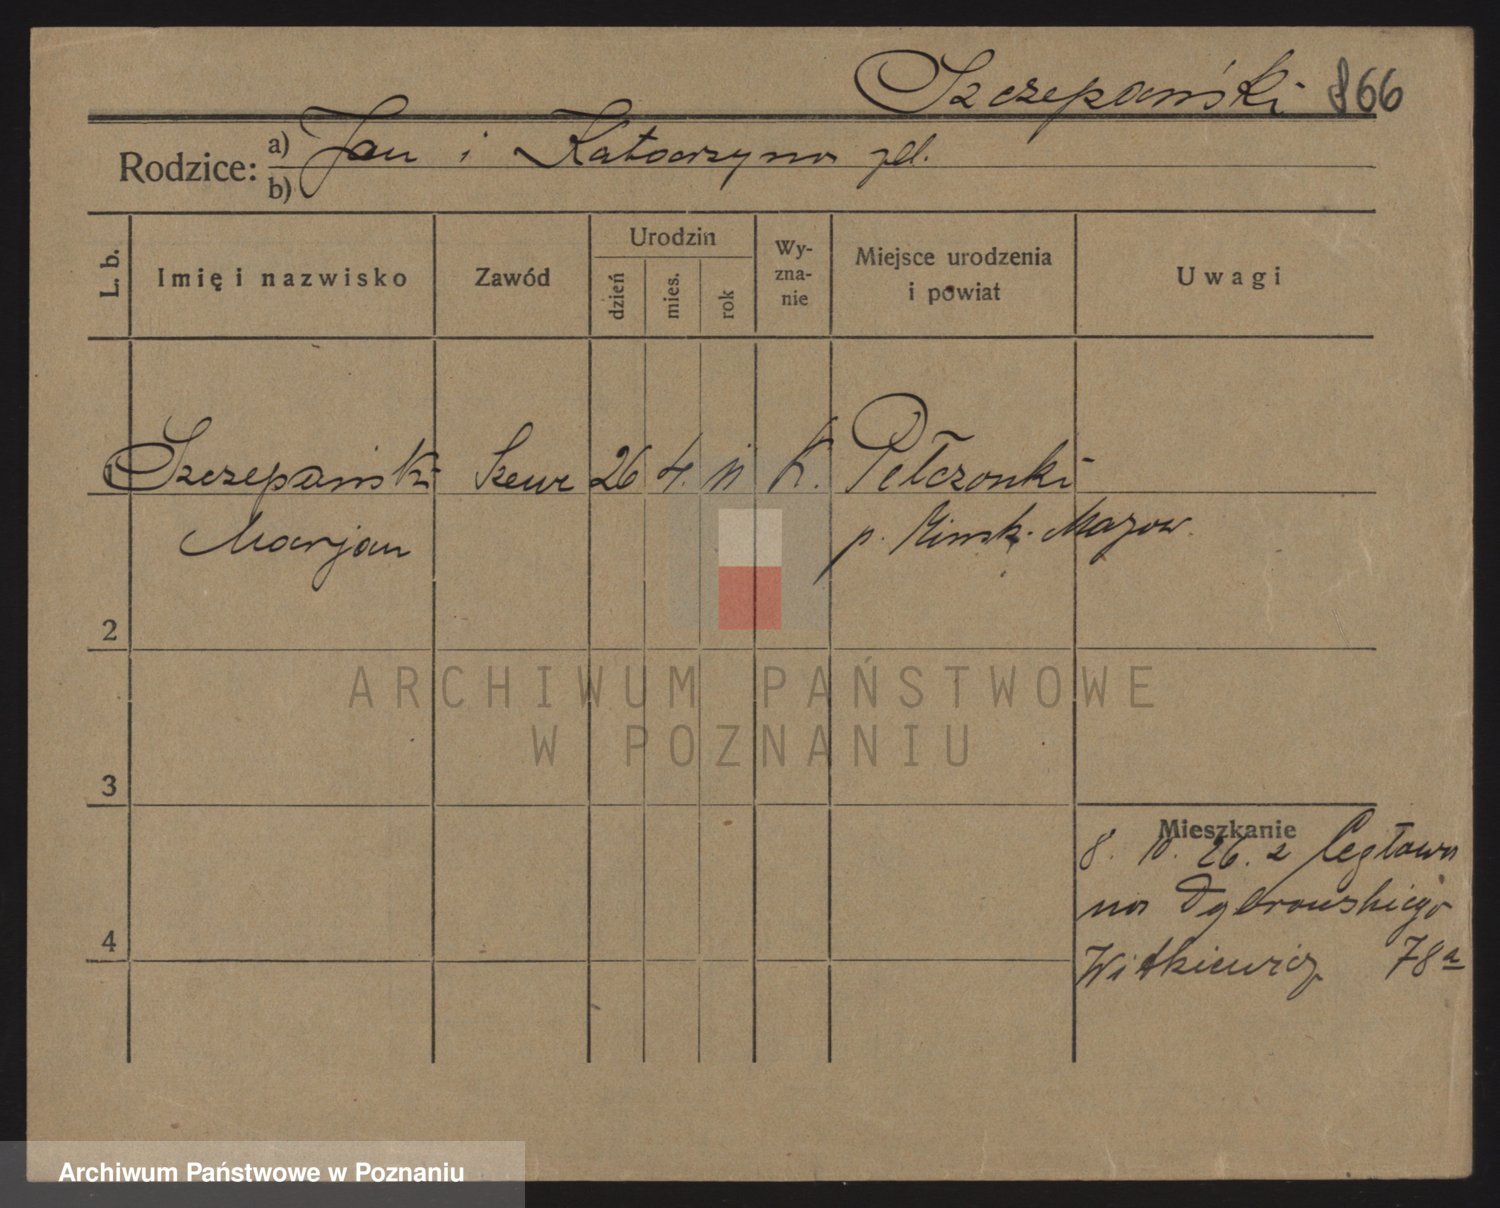 Szczepański 866
Rodzice: a) Jan i Katarzyna
b)
L. b. Imię i nazwisko Zawód Urodzin dzień mies. rok Wy-zna-nie Miejsce urodzenia i powiat Uwagi
Szczepański Szewc 26 4. 11 K. Pełczonki
Marjan p. Mińsk. Mazow.
2
ARCHIWUM PAŃSTWOWE
W POZNANIU
3
Mieszkanie
8. 10. 26. z Cegłowa
na Dąbrowskiego
4
Witkiewicz 78a
Archiwum Państwowe w Poznaniu